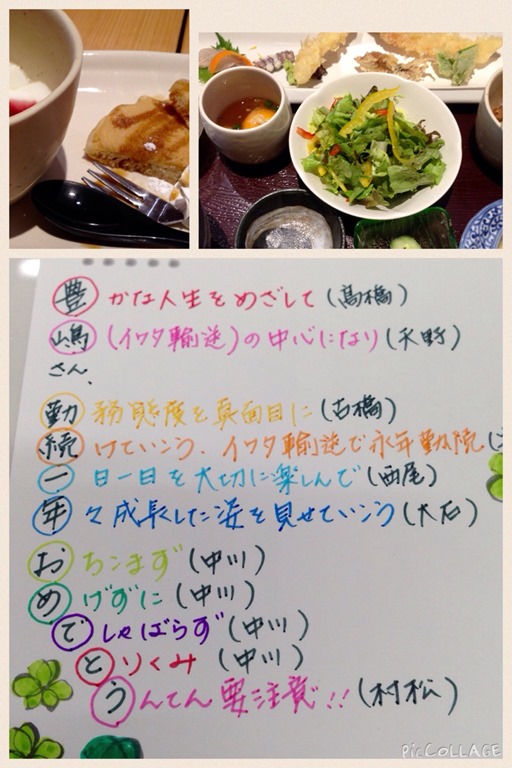 豊かな人生をめざして(髙橋)
嶋(イワタ輸送)の中心になり(天野)
さん、
勤務態度を真面目に(古橋)
続けていこう、イワタ輸送で永年勤続(
一日一日を大切に楽しんで(西尾)
年々成長した姿を見せていこう(大石)
おちこまず(中川)
めげずに(中川)
でしゃばらず(中川)
とりくみ(中川)
うんてん要注意!!(村松)
PicCOLLAGE